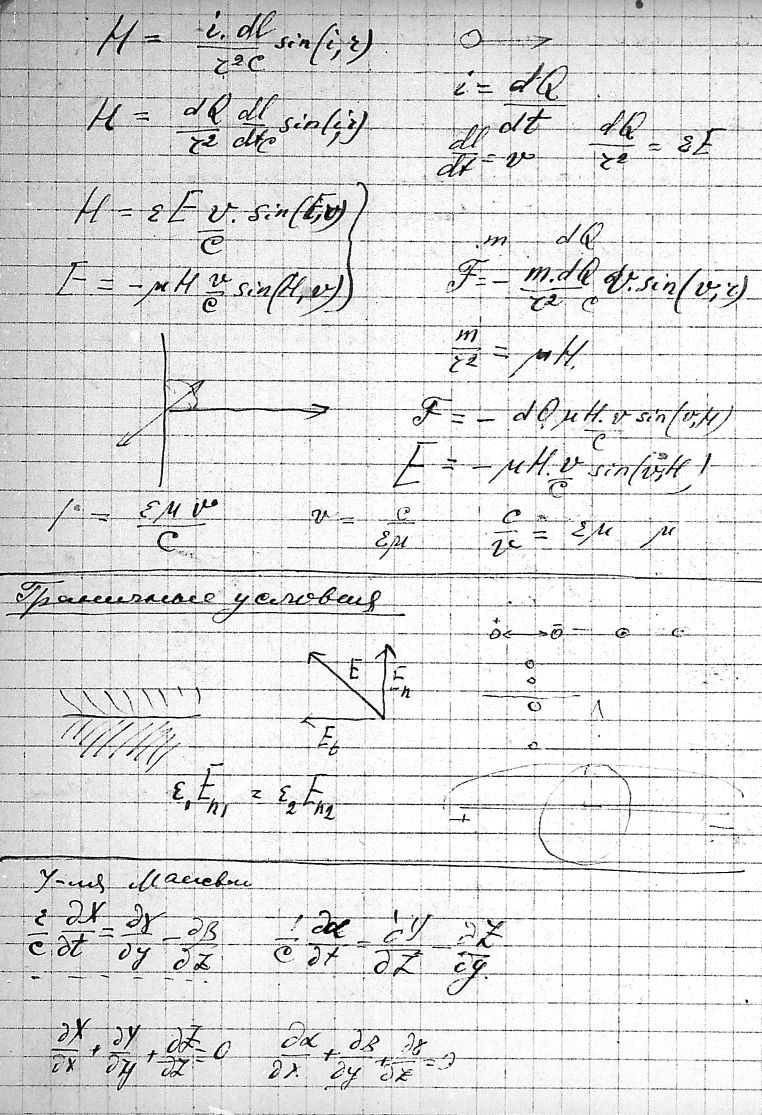 H = i. dl / r²c sin(i, r)
i = dQ / dt
H = dQ / r² dl / dtc sin(i, r)
dl / dt = v dQ / r² = εE
H = εE v. / c sin(E, v)
m dQ
E = -μH v / c sin(H, v)
F = - m.dQ / r² c v. sin(v, r)
m / r² = μH.
F = - dQ μH.v / c sin(v, H)
E = -μH. v / c sin(v, H)
1 = εμv / c v = c / εμ c / v = εμ μ
Граничные условия
+ -
E En
Et
ε₁En₁ = ε₂En₂
+ -
У-ия Максвел
ε / c ∂X / ∂t = ∂γ / ∂y - ∂β / ∂z 1 / c ∂α / ∂t = ∂Y / ∂z - ∂Z / ∂y.
∂X / ∂x + ∂Y / ∂y + ∂Z / ∂z = 0 ∂α / ∂x + ∂β / ∂y + ∂γ / ∂z = 0